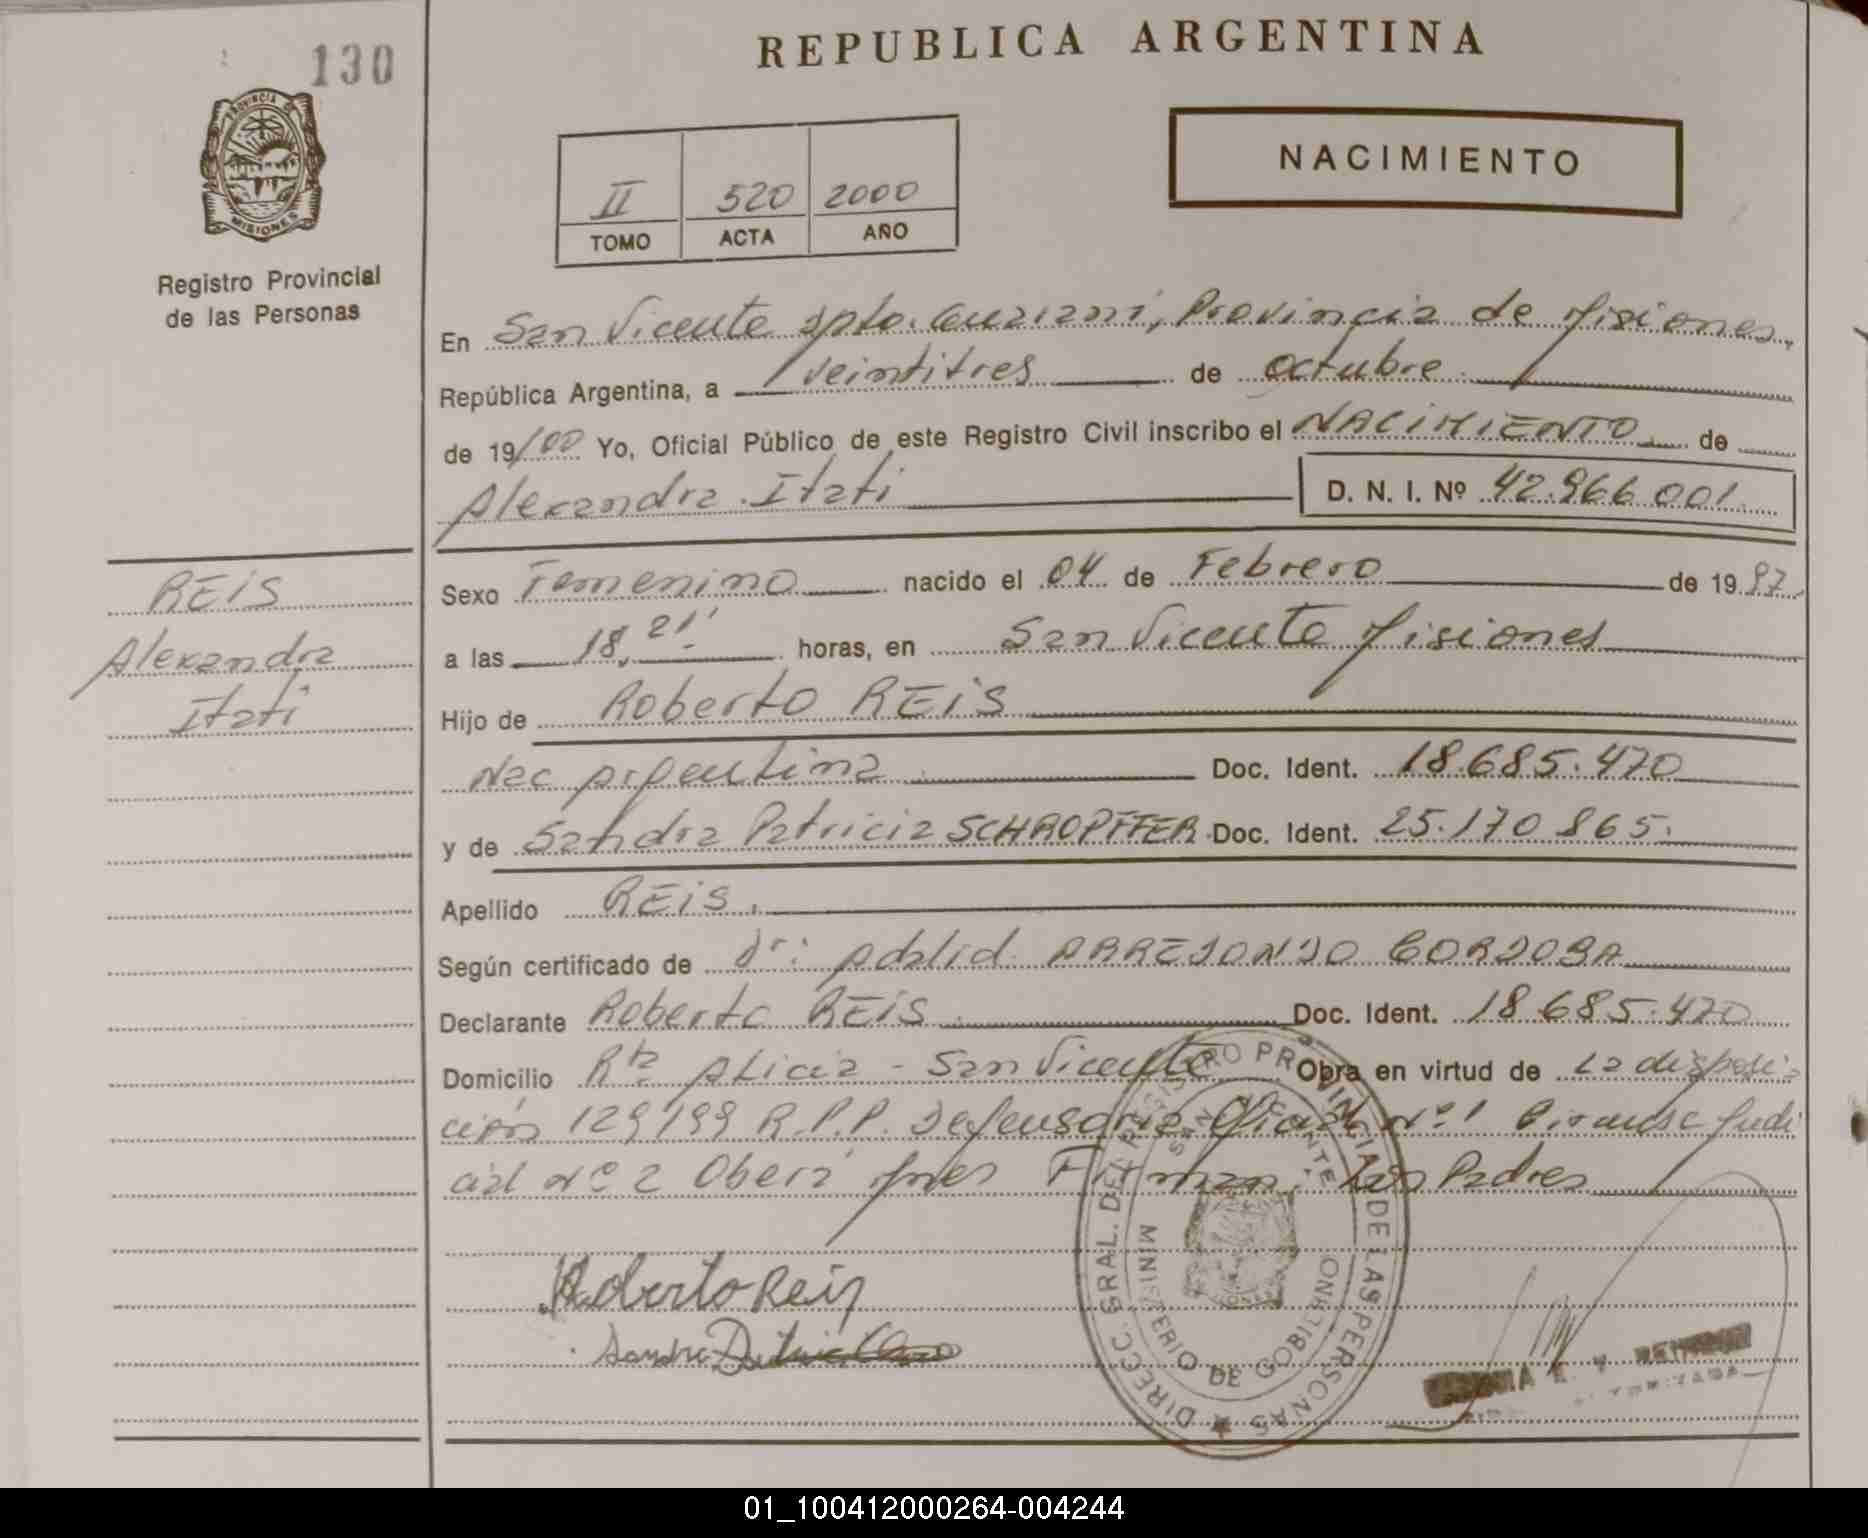 130
REPUBLICA ARGENTINA
PROVINCIA DE
MISIONES
Registro Provincial
de las Personas
II 520 2000
TOMO ACTA AÑO
NACIMIENTO
En San Vicente Dpto. Guaraní, Provincia de Misiones
República Argentina, a veintitres de octubre
de 19/00 Yo, Oficial Público de este Registro Civil inscribo el NACIMIENTO de
Alexandra Itati D. N. I. Nº 42.966.001
REIS
Alexandra
Itati
Sexo Femenino nacido el 04 de Febrero de 1997
a las 18,21' horas, en San Vicente Misiones
Hijo de Roberto REIS
Nac Argentina Doc. Ident. 18.685.470
y de Sandra Patricia SCHROPFFER Doc. Ident. 25.170.865.
Apellido REIS.
Según certificado de Dr: Adalid ARREDONDO CORDOBA
Declarante Roberto REIS Doc. Ident. 18.685.470
Domicilio Rta Alicia - San Vicente Obra en virtud de La disposi-
ción 129/99 R.P.P. Defensoría Oficial Nº 1 Judi
cial Nº 2 Oberá Mnes Firman: Los Padres
Roberto Reis
Sandra
DIRECC. GRAL. DEL REGISTRO PROVINCIAL DE LAS PERSONAS
SAN VICENTE
MINISTERIO DE GOBIERNO
01_100412000264-004244